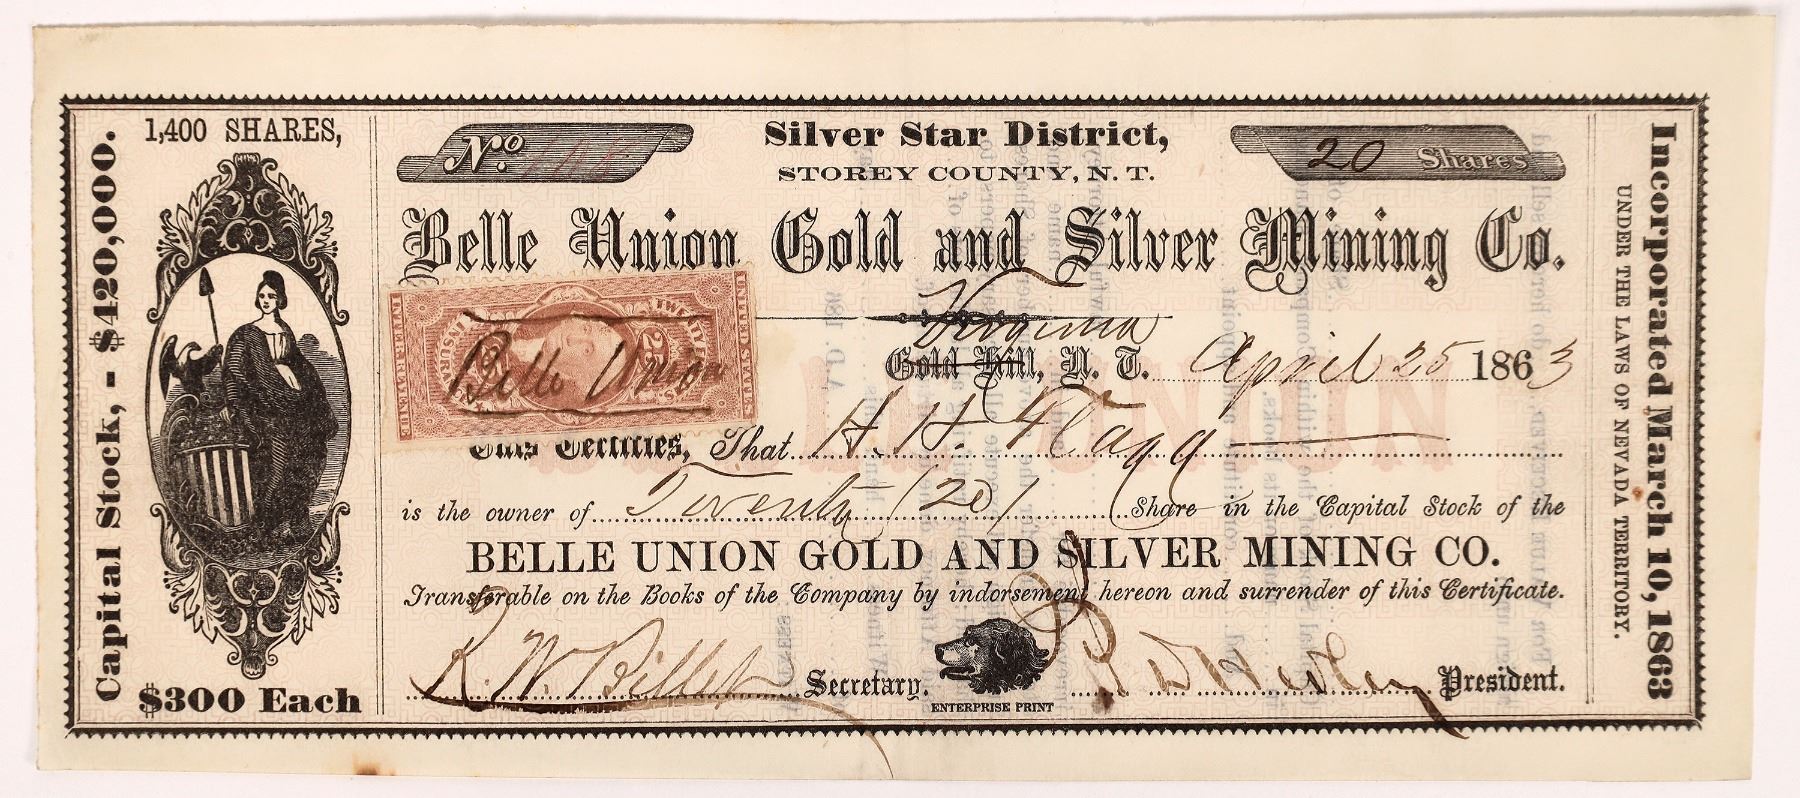 1,400 SHARES,
Capital Stock, - $420,000.
$300 Each
No.
Silver Star District,
STOREY COUNTY, N. T.
20 Shares
Belle Union Gold and Silver Mining Co.
UNITED STATES
INTER. REVENUE
25
Belle Union
Virginia
Gold Hill, N. T. April 25 1863
This Certifies, That H. H. Flagg
is the owner of Twenty (20) Share in the Capital Stock of the
BELLE UNION GOLD AND SILVER MINING CO.
Transferable on the Books of the Company by indorsement hereon and surrender of this Certificate.
R. W. Billet Secretary.
ENTERPRISE PRINT
President.
Incorporated March 10, 1863
UNDER THE LAWS OF NEVADA TERRITORY.